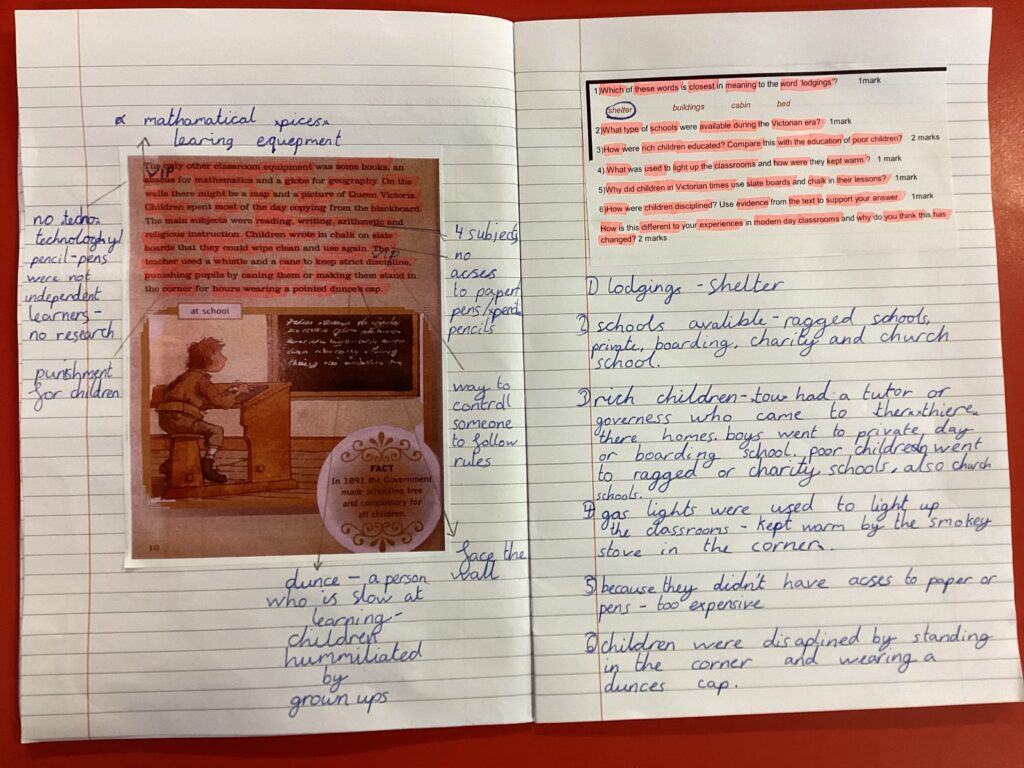 mathematical pices
learing equepment
The only other classroom equipment was some books, an
abacus for mathematics and a globe for geography. On the
walls there might be a map and a picture of Queen Victoria.
Children spent most of the day copying from the blackboard.
The main subjects were reading, writing, arithmetic and
religious instruction. Children wrote in chalk on slate
boards that they could wipe clean and use again. The
teacher used a whistle and a cane to keep strict discipline,
punishing pupils by caning them or making them stand in
the corner for hours wearing a pointed dunce's cap.
VIP
VIP
no techno-
technologhyl
pencil-pens
were not
independent
learners-
no research
punishment
for children
4 subjects
no
acses
to paper
pens/
pencils
way to
controll
someone
to follow
rules
at school
FACT
In 1891 the Government
made schooling free
and compulsory for
all children.
10
face the
wall
dunce - a person
who is slow at
learning-
children
hummiliated
by
grown ups
1) Which of these words is closest in meaning to the word 'lodgings'? 1mark
shelter buildings cabin bed
2) What type of schools were available during the Victorian era? 1mark
3) How were rich children educated? Compare this with the education of poor children? 2 marks
4) What was used to light up the classrooms and how were they kept warm? 1 mark
5) Why did children in Victorian times use slate boards and chalk in their lessons? 1mark
6) How were children disciplined? Use evidence from the text to support your answer. 1mark
How is this different to your experiences in modern day classrooms and why do you think this has
changed? 2 marks
1) lodgings - shelter
2) schools avalible - ragged schools,
private, boarding, charity and church
school.
3) rich children - had a tutor or
governess who came to
there homes. boys went to private day
or boarding school. poor children went
to ragged or charity schools, also church
schools.
4) gas lights were used to light up
the classrooms - kept warm by the smokey
stove in the corner.
5) because they didn't have acses to paper or
pens - too expensive
6) children were disaplined by standing
in the corner and wearing a
dunces cap.